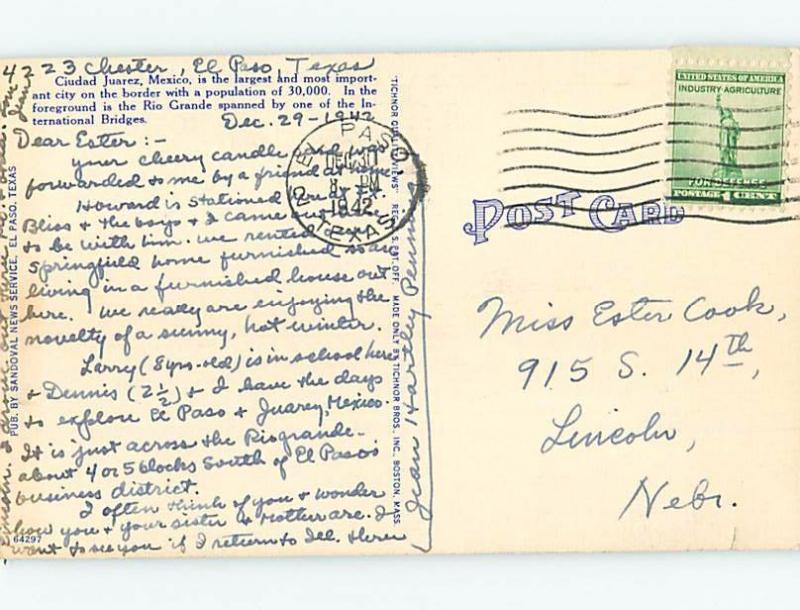 4223 Chester, El Paso, Texas
Ciudad Juarez, Mexico, is the largest and most import-
ant city on the border with a population of 30,000. In the
foreground is the Rio Grande spanned by one of the In-
ternational Bridges.
Dec. 29-1942
Dear Ester:-
your cheery candle was
forwarded to me by a friend at
Howard is stationed at Ft.
Bliss & the boys & I came
to be with him. We rented
Springfield home furnished so are
living in a furnished house out
here. We really are enjoying the
novelty of a sunny, hot winter.
Larry (8 yrs-old) is in school here
& Dennis (2½) & I have the days
to explore El Paso & Juarez, Mexico.
It is just across the Riogrande-
about 4 or 5 blocks South of El Paso's
business district.
I often think of you & wonder
how you & your sister & Mother are. I
want to see you if I return to Ill. thru
Lincoln. I
Jean Hartley Penn
64297
PUB. BY SANDOVAL NEWS SERVICE, EL PASO, TEXAS
"TICHNOR QUALITY VIEWS" REG. U. S. PAT. OFF. MADE ONLY BY TICHNOR BROS., INC., BOSTON, MASS.
EL PASO
DEC 30
8 PM
1942
TEXAS
UNITED STATES OF AMERICA
INDUSTRY-AGRICULTURE
FOR DEFENSE
POSTAGE 1 CENT
POST CARD
Miss Ester Cook,
915 S. 14th,
Lincoln,
Nebr.